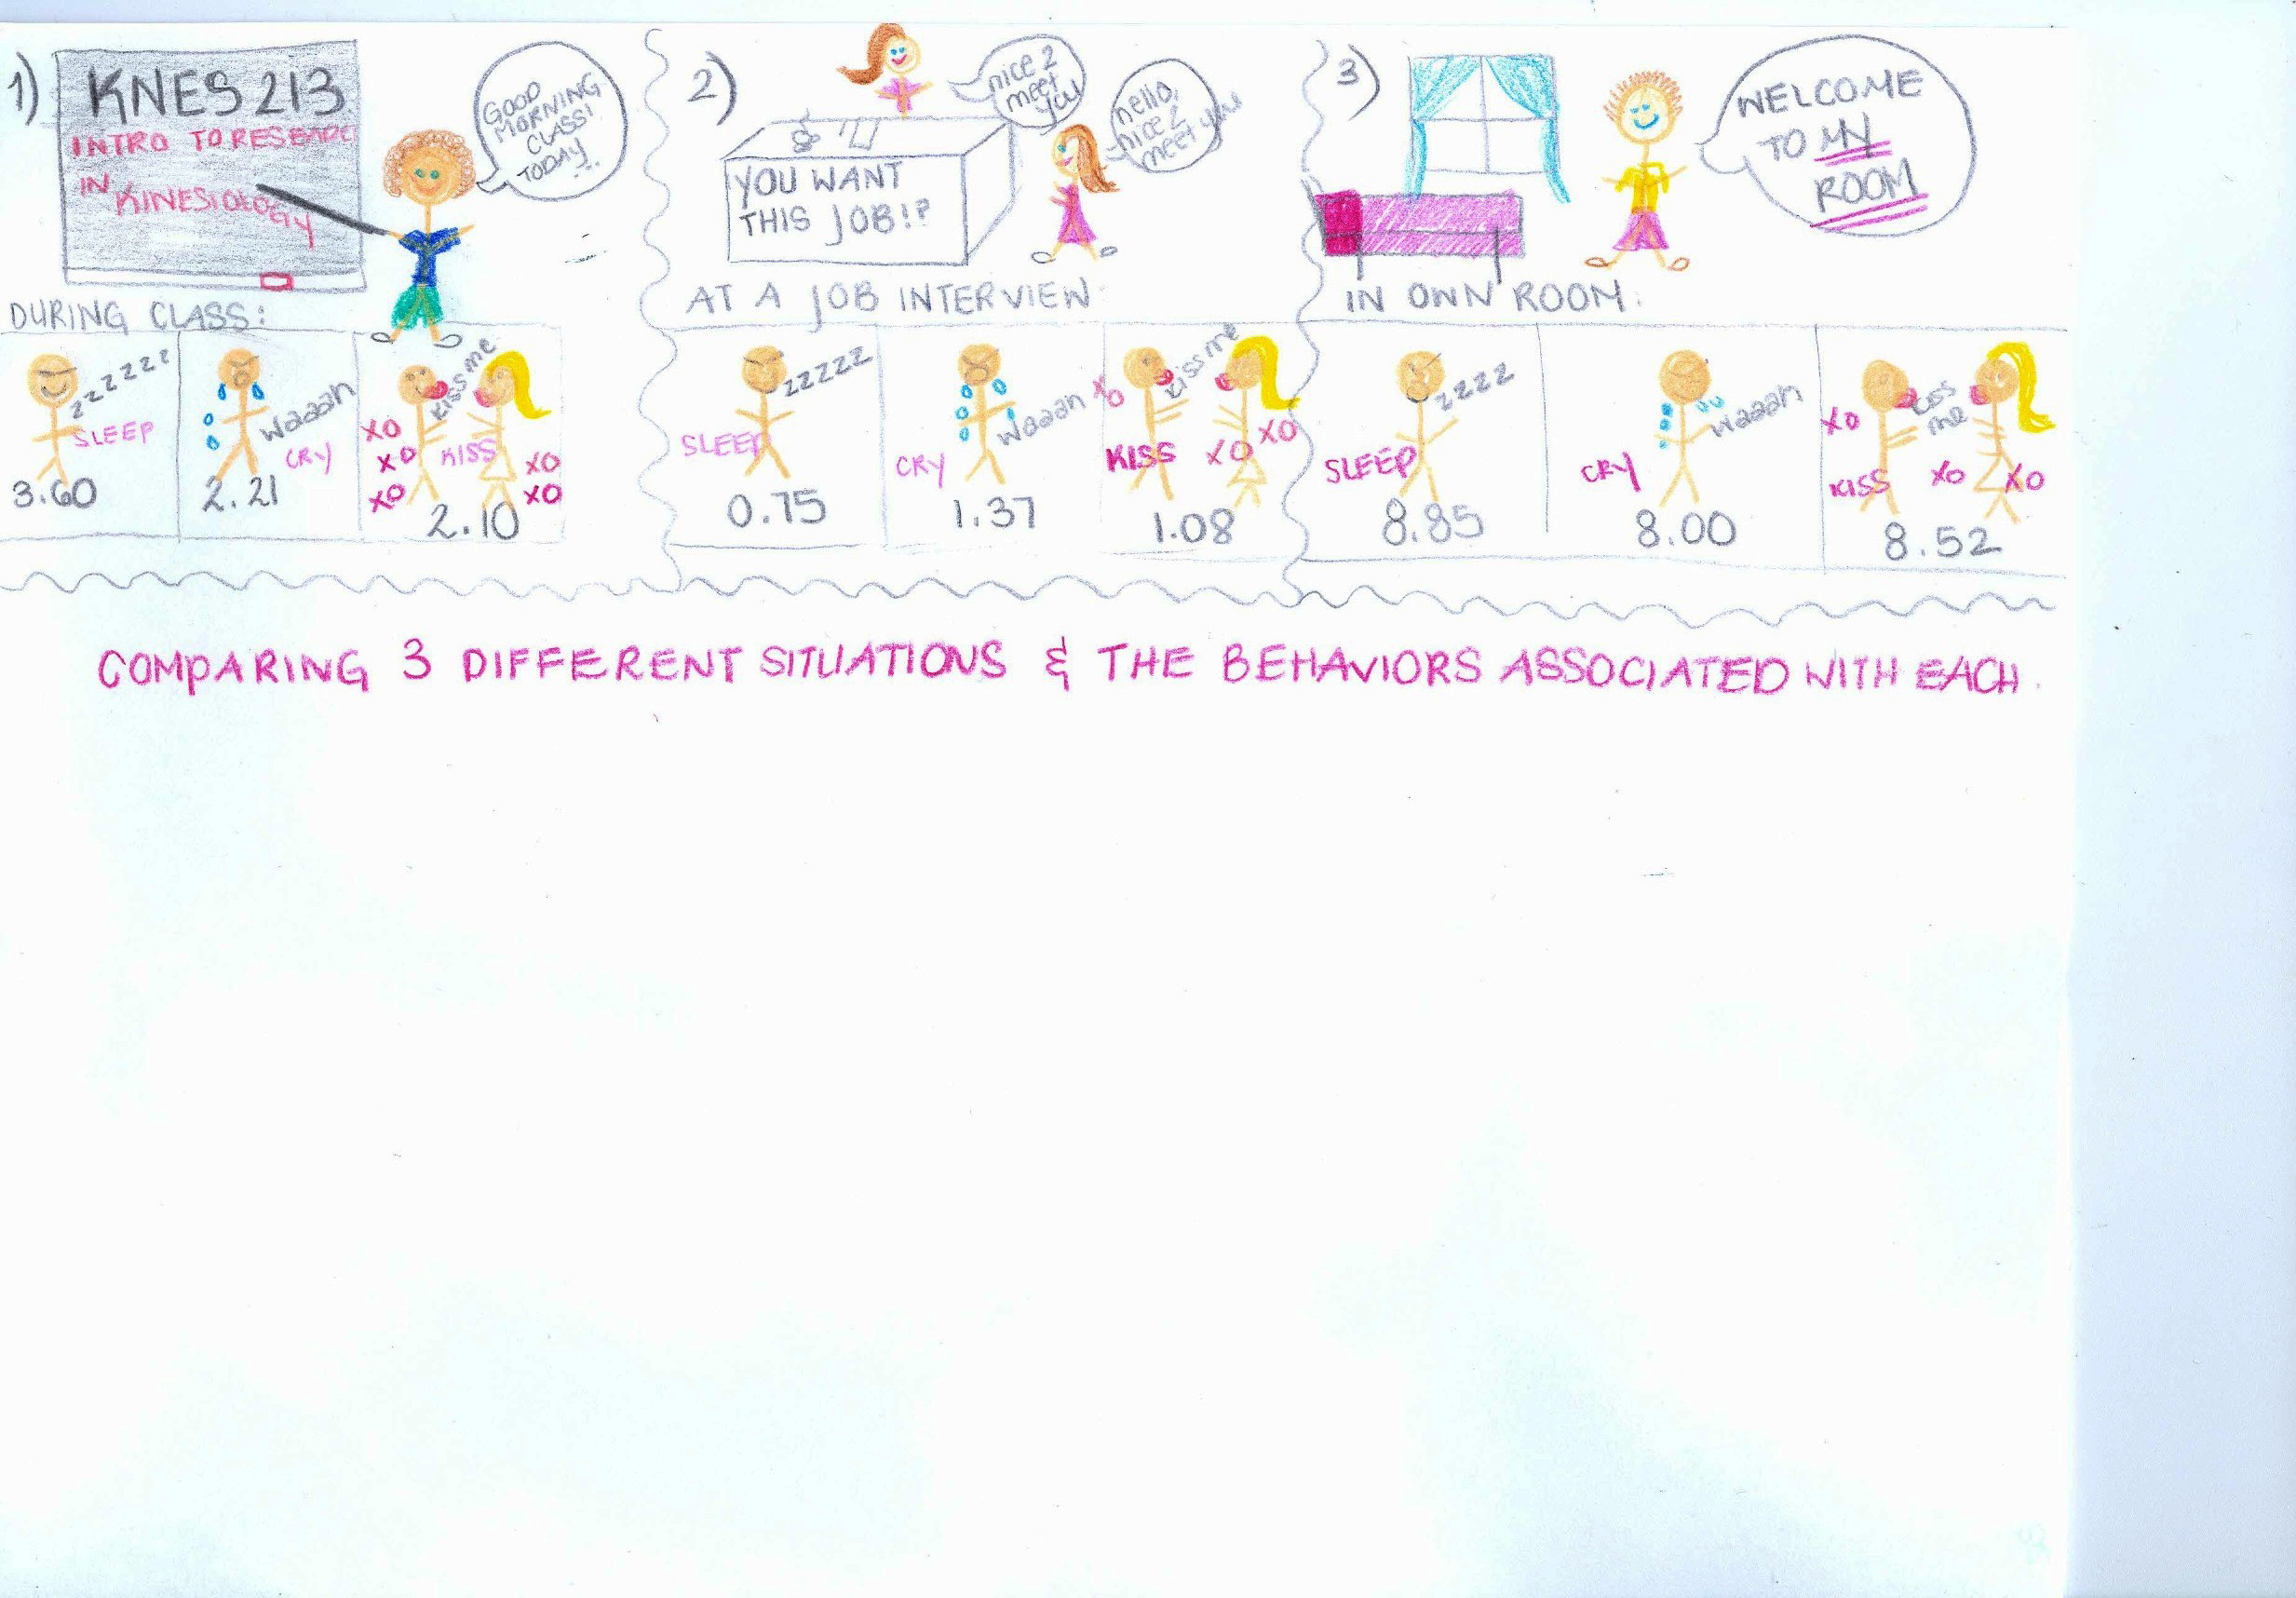 1)
KNES 213
INTRO TO RESEARC
IN
KINESIOLOGY
GOOD
MORNING
CLASS!
TODAY...
DURING CLASS:
zzzzzzz
SLEEP
3.60
waaah
CRY
2.21
kiss me
XO
XO
XO
KISS
XO
XO
2.10
2)
nice 2
meet
you
hello,
nice 2
meet you
YOU WANT
THIS JOB!?
AT A JOB INTERVIEW:
zzzzz
SLEEP
0.75
waaah
CRY
1.37
XO
kiss me
KISS
XO
XO
1.08
3)
WELCOME
TO MY
ROOM
IN OWN ROOM:
zzzz
SLEEP
8.85
waaah
CRY
8.00
XO
kiss
me
KISS
XO
XO
8.52
COMPARING 3 DIFFERENT SITUATIONS & THE BEHAVIORS ASSOCIATED WITH EACH.